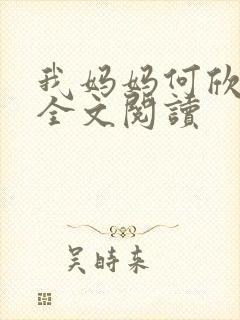 我妈妈何欣
全文閱讀
吴時来